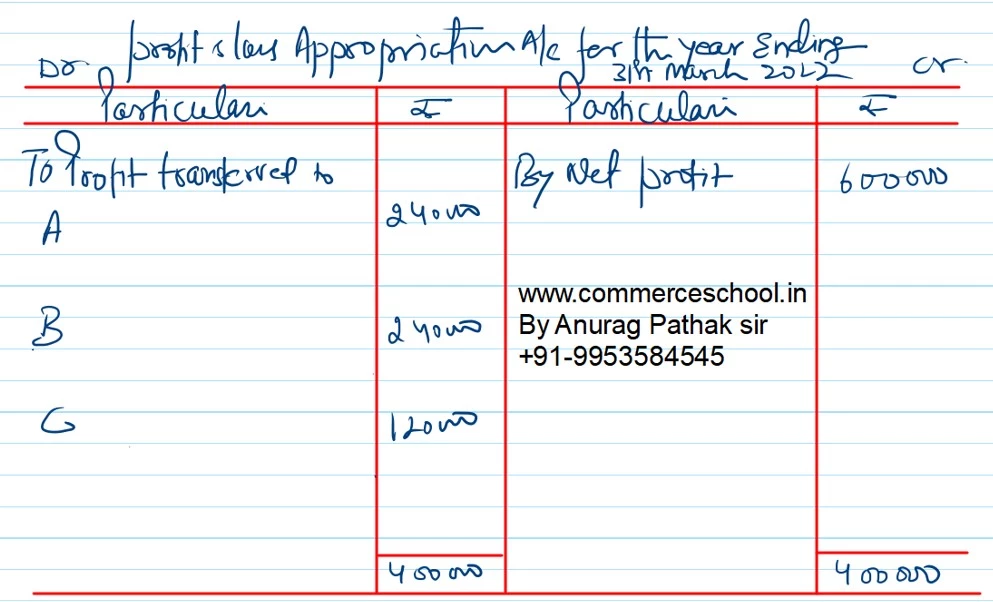 Profit & loss Appropriation A/c for the year Ending
Dr 31st March 2022 Cr
Particulars ₹ Particulars ₹
To Profit transferred to By Net profit 600000
A 240000
www.commerceschool.in
B 240000 By Anurag Pathak sir
+91-9953584545
C 120000
400000 400000